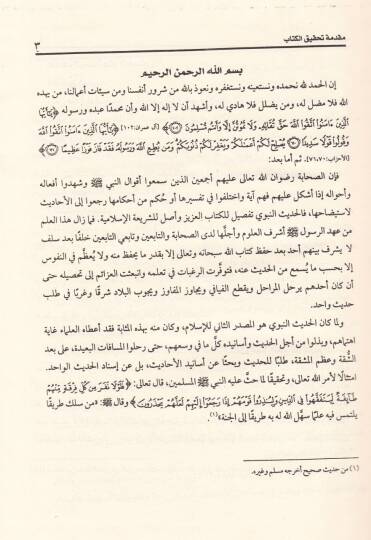 مقدمة تحقيق الكتاب
٣
بسم الله الرحمن الرحيم
إن الحمد لله نحمده ونستعينه ونستغفره ونعوذ بالله من شرور أنفسنا ومن سيئات أعمالنا، من يهده
الله فلا مضل له، ومن يضلل فلا هادي له، وأشهد أن لا إله إلا الله وأن محمدًا عبده ورسوله ﴿يَٰٓأَيُّهَا
ٱلَّذِينَ ءَامَنُوا۟ ٱتَّقُوا۟ ٱللَّهَ حَقَّ تُقَاتِهِۦ وَلَا تَمُوتُنَّ إِلَّا وَأَنتُم مُّسْلِمُونَ ﴿١٠٢﴾﴾ [آل عمران: ١٠٢] ﴿يَٰٓأَيُّهَا ٱلَّذِينَ ءَامَنُوا۟ ٱتَّقُوا۟ ٱللَّهَ
وَقُولُوا۟ قَوْلًا سَدِيدًا ﴿٧٠﴾ يُصْلِحْ لَكُمْ أَعْمَٰلَكُمْ وَيَغْفِرْ لَكُمْ ذُنُوبَكُمْ وَمَن يُطِعِ ٱللَّهَ وَرَسُولَهُۥ فَقَدْ فَازَ فَوْزًا عَظِيمًا ﴿٧١﴾﴾
[الأحزاب: ٧٠، ٧١]. ثم أما بعد:
فإن الصحابة رضوان الله تعالى عليهم أجمعين الذين سمعوا أقوال النبي ﷺ وشهدوا أفعاله
وأحواله إذا أشكل عليهم فهم آية واختلفوا في تفسيرها أو حُكم من أحكامها رجعوا إلى الأحاديث
لاستيضاحها، فالحديث النبوي تفصيل للكتاب العزيز وأصل للشريعة الإسلامية. فما زال هذا العلم
من عهد الرسول ﷺ أشرف العلوم وأجلَّها لدى الصحابة والتابعين وتابعي التابعين خلفًا بعد سلف
لا يشرف بينهم أحد بعد حفظ كتاب الله سبحانه وتعالى إلا بقدر ما يحفظ منه ولا يُعظَّم في النفوس
إلا بحسب ما يُسمع من الحديث عنه، فتوفَّرت الرغبات في تعلمه وانبعثت العزائم إلى تحصيله حتى
أن كان أحدهم يرحل المراحل ويقطع الفيافي ويجاوز المفاوز ويجوب البلاد شرقًا وغربًا في طلب
حديث واحد.
ولما كان الحديث النبوي هو المصدر الثاني للإسلام، وكان منه بهذه المثابة فقد أعطاه العلماء غاية
اهتمامهم، وبذلوا من أجل الحديث وأسانيده كلَّ ما في وسعهم، حتى رحلوا المسافات البعيدة، على بعد
الشُّقة وعظم المشقة، طلبًا للحديث وبحثًا عن أسانيد الأحاديث، بل عن إسناد الحديث الواحد.
امتثالًا لأمر الله تعالى، وتحقيقًا لما حثَّ عليه النبي ﷺ المسلمين، قال تعالى: ﴿فَلَوْلَا نَفَرَ مِن كُلِّ فِرْقَةٍ مِّنْهُمْ
طَآئِفَةٌ لِّيَتَفَقَّهُوا۟ فِى ٱلدِّينِ وَلِيُنذِرُوا۟ قَوْمَهُمْ إِذَا رَجَعُوٓا۟ إِلَيْهِمْ لَعَلَّهُمْ يَحْذَرُونَ﴾ وقال ﷺ: «من سلك طريقًا
يلتمس فيه علمًا سهَّل الله له به طريقًا إلى الجنة»(١).
(١) من حديث صحيح أخرجه مسلم وغيره.